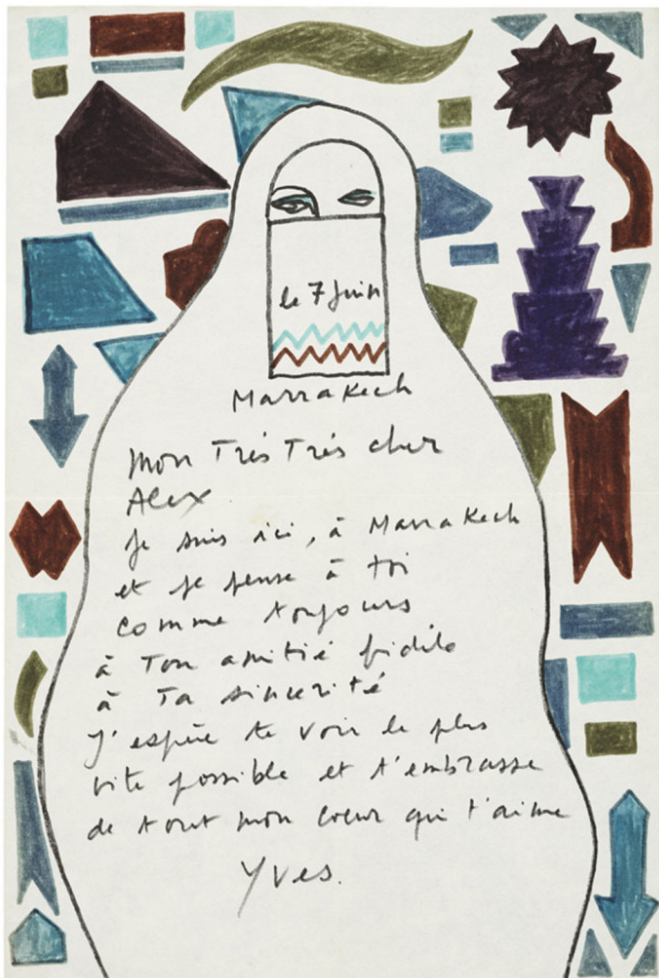 le 7 Juin
Marrakech
Mon Très Très cher
Alex
Je suis ici, à Marrakech
et je pense à toi
comme toujours
à Ton amitié fidèle
à Ta sincérité
J'espère te voir le plus
vite possible et t'embrasse
de tout mon coeur qui t'aime
Yves.